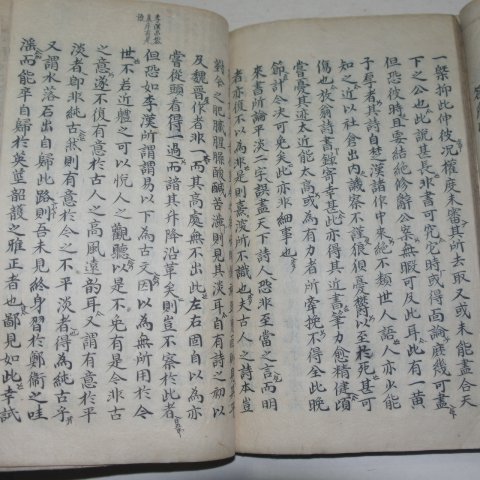 一槩抑此伸彼況權度未審其所去取又或未能盡合天
下之公也此說甚長非書可究它時或得面論庶幾可盡
但恐彼時且要結絶修辭公案無暇可反此耳此有一黃
子厚者其詩自楚漢諸作中來絶不類世人語人亦少能
知之近以社倉出內議察不謹狼狽憂欝以至於死甚可
傷也放翁詩書錄寄幸甚此亦得其近書筆力愈精健頃
嘗憂其迹太近能太高或為有力者所牽挽不得全此晚
節計今決可免矣此亦非細事也
來書所論平淡二字誤盡天下詩人恐非至當之言而明
者亦復不以為非是則熹淡所不識也夫古人之詩本豈
對今之肥膩腥臊酸鹹苦澁則見其淡耳自有詩之初以
及魏晉作者非一而其高處無不出此左右固自以為亦
嘗從頭看得一過而諳其升降沿革矣則豈不察於此者
但恐如李漢所謂謂易以下為古文因以為無所用於今
世不若近軆之可以悅人之觀聽以是不免有是今非古
之意遂不復有意於古人之高風遠韻耳又謂有意於平
淡者即非純古然則有意於今之不平淡者得為純古乎
又謂水落石出自歸此路則吾未見終身習於鄭衞之哇
滛而能卒自歸於英莖韶護之雅正者也鄙見如此幸試